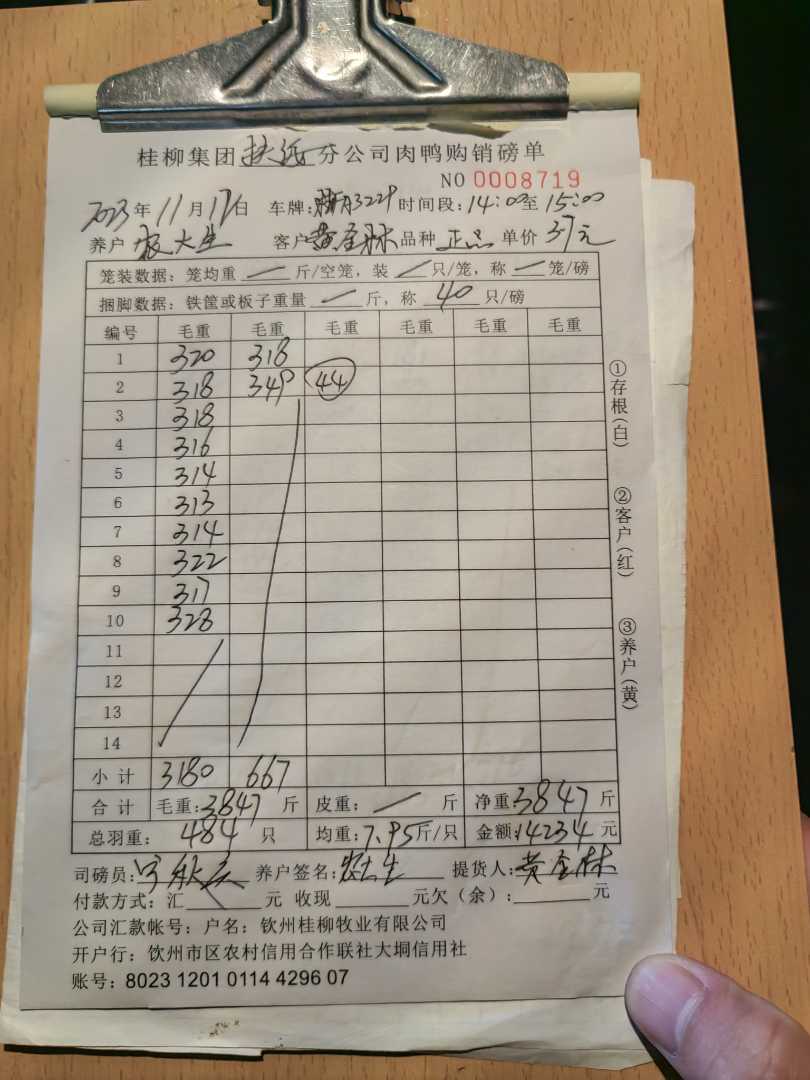 桂柳集团扶远分公司肉鸭购销磅单
NO 0008719
2023年11月17日 车牌: 3229 时间段:14:00至15:00
养户 农大生 客户黄金林 品种 正品 单价 37元
笼装数据: 笼均重 — 斤/空笼, 装 — 只/笼, 称 — 笼/磅
捆脚数据: 铁筐或板子重量 — 斤, 称 40 只/磅
编号 毛重 毛重 毛重 毛重 毛重 毛重
1 320 318
2 318 349 44
3 318
4 316
5 314
6 313
7 314
8 322
9 317
10 328
11
12
13
14
小计 3180 667
合计 毛重:3847 斤 皮重: — 斤 净重3847斤
总羽重: 484 只 均重:7.95斤/只 金额:14234元
司磅员: 养户签名:农大生 提货人:黄金林
付款方式: 汇 元 收现 元欠(余): 元
公司汇款帐号: 户名: 钦州桂柳牧业有限公司
开户行: 钦州市区农村信用合作联社大垌信用社
账号: 8023 1201 0114 4296 07
①存根(白)
②客户(红)
③养户(黄)